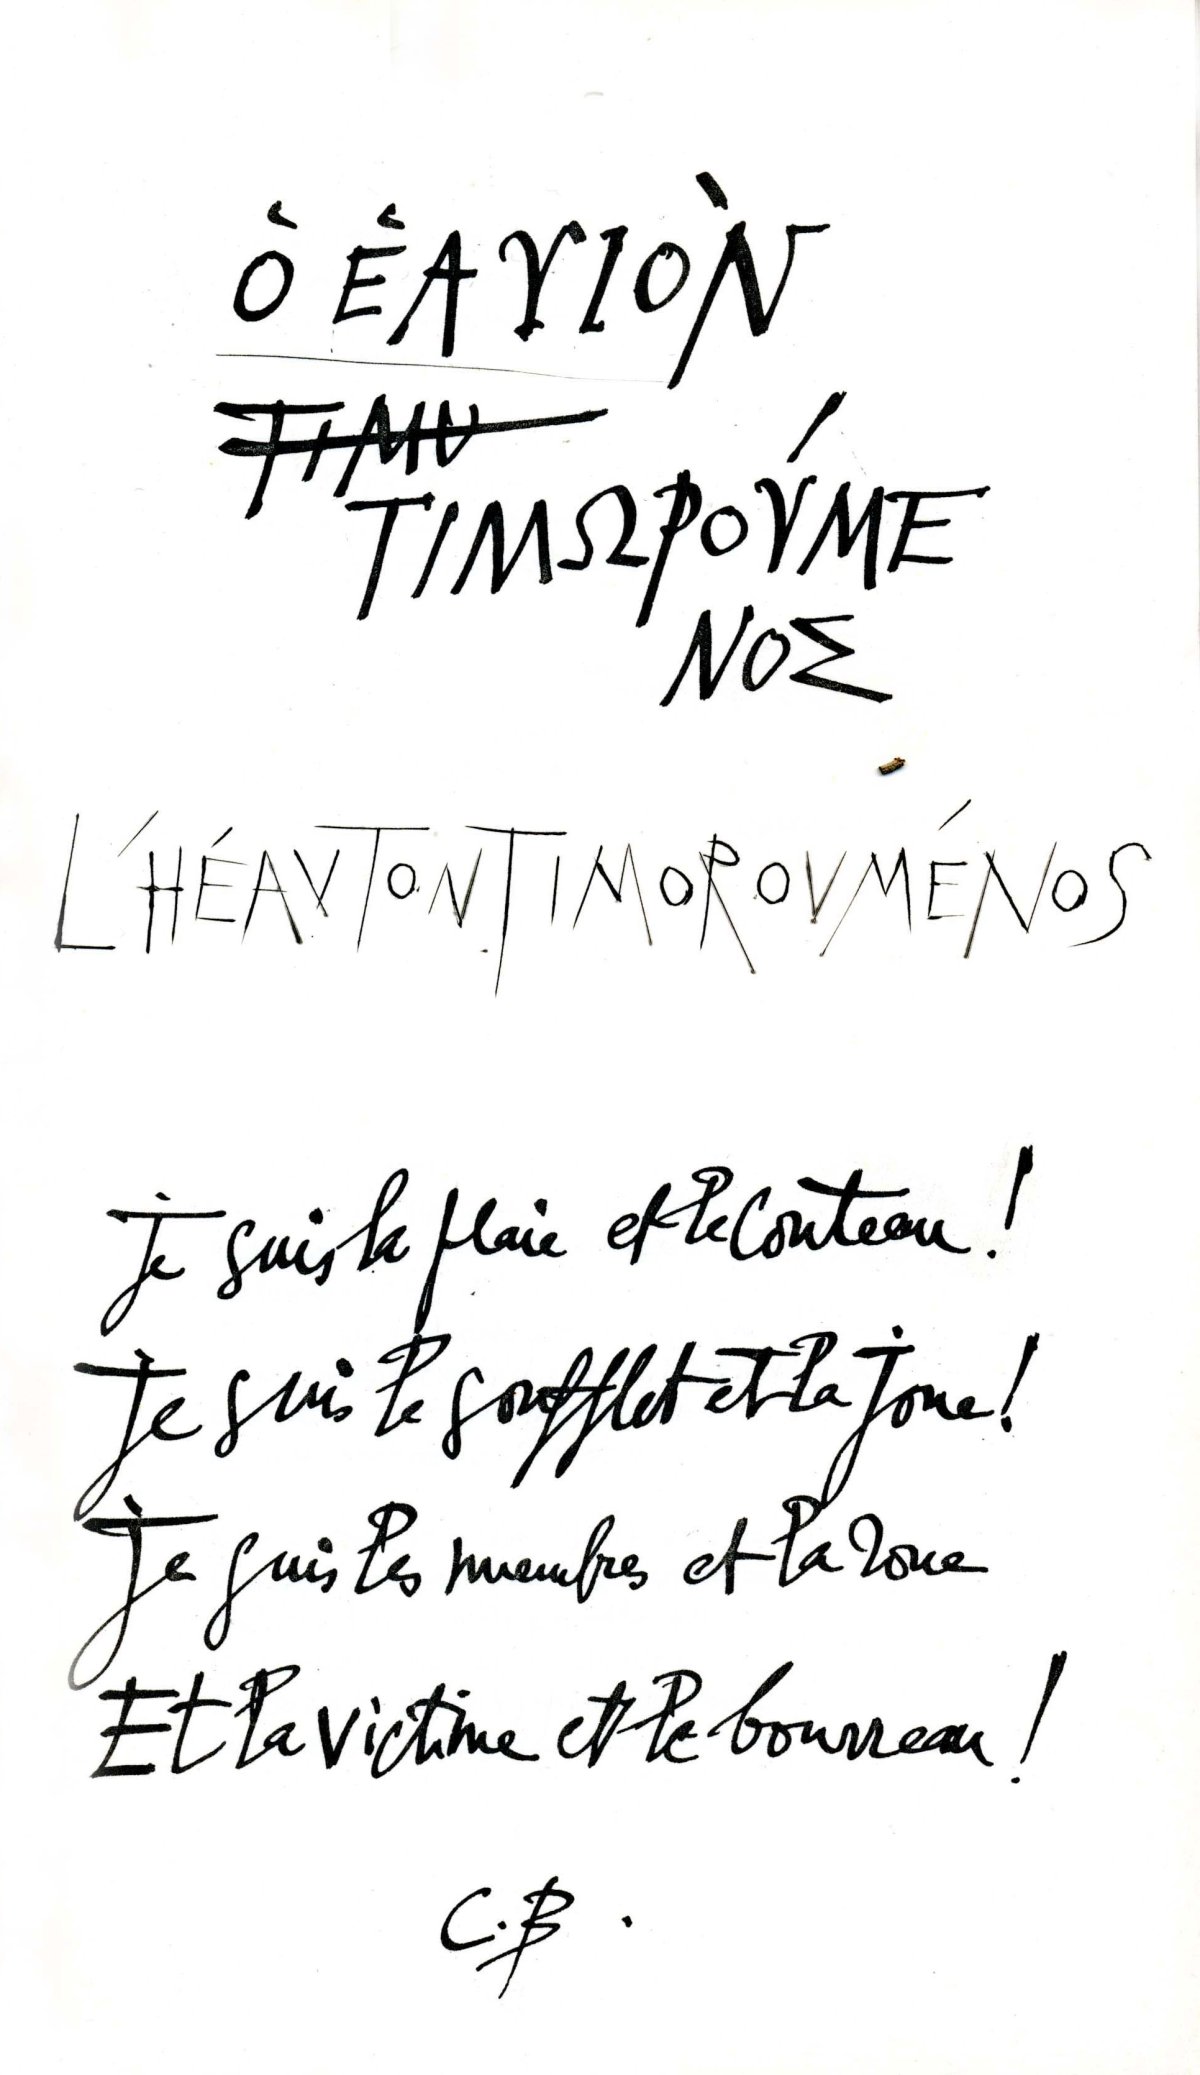 Ὁ ἙΑΥΙΟῸΝ
ΤΙΜΥ
ΤΙΜΩΡΟΎΜΕ
ΝΟΣ
L'HÉAVTONTIMOROVMÉNOS
Je suis la plaie et le couteau !
Je suis le soufflet et la joue !
Je suis les membres et la roue
Et la victime et le bourreau !
C.B.